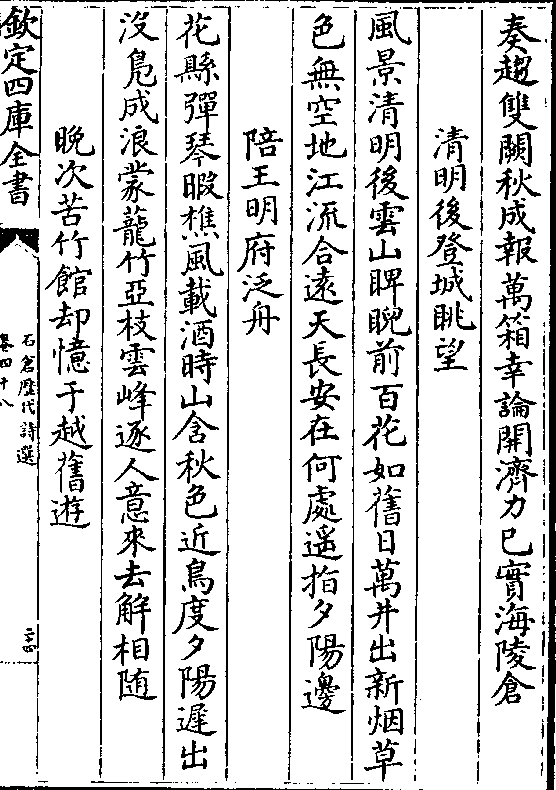 奏趨雙闕秋成報萬箱幸論開濟力已實海陵倉
清明後登城眺望
風景清明後雲山睥睨前百花如舊日萬井出新烟草
色無空地江流合遠天長安在何處遥指夕陽邊
陪王明府泛舟
花縣彈琴暇樵風載酒時山含秋色近鳥度夕陽遲出
沒鳧成浪蒙蘢竹亞枝雲峰逐人意來去解相随
晚次苦竹館却憶于越舊遊
欽定四庫全書
石倉歷代詩選
卷四十八
二古